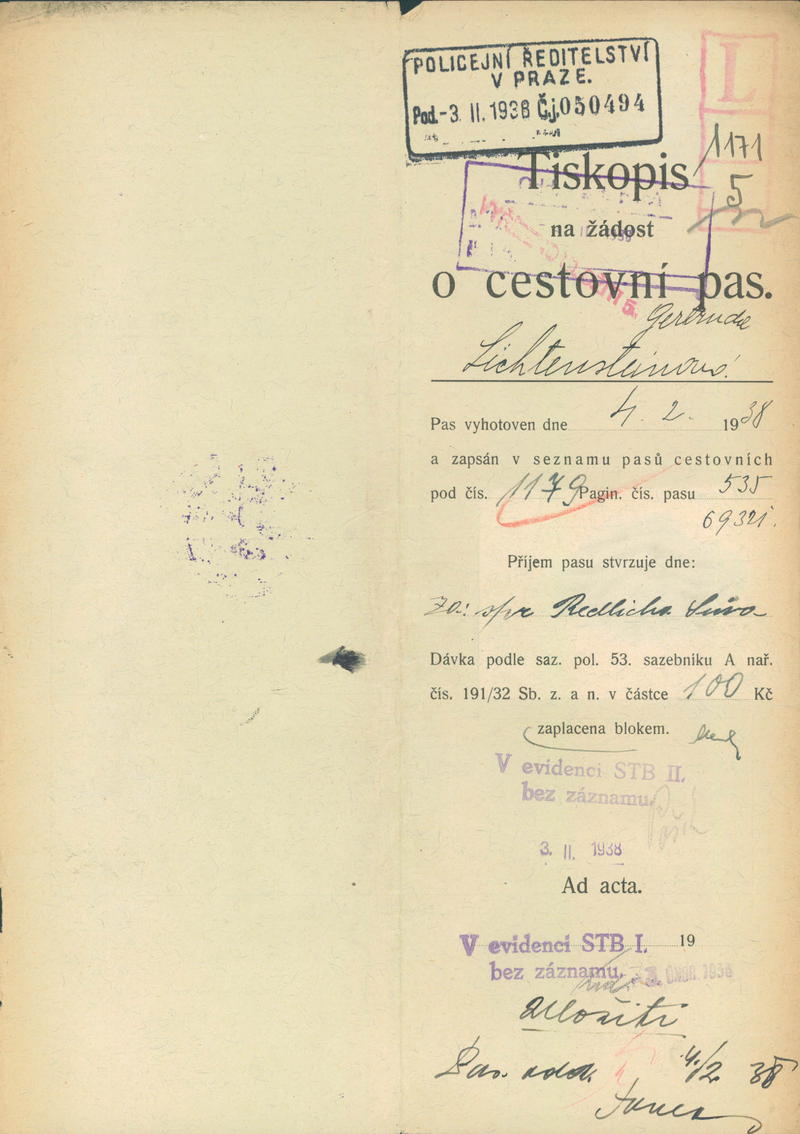 POLICEJNÍ ŘEDITELSTVÍ
V PRAZE.
Pod. -3. II. 1938 Č.j. 050494
L
1171
5
Tiskopis
na žádost
o cestovní pas.
Gertruda
Lichtensteinová
Pas vyhotoven dne 4. 2. 1938
a zapsán v seznamu pasů cestovních
pod čís. 1179 Pagin. čís. pasu 535
69321.
Příjem pasu stvrzuje dne:
Za: spr Redlicha
Dávka podle saz. pol. 53. sazebníku A nař.
čís. 191/32 Sb. z. a n. v částce 100 Kč
zaplacena blokem.
V evidenci STB II.
bez záznamu.
3. II. 1938
Ad acta.
V evidenci STB I. 19
bez záznamu. ÚNOR 1938
Uložiti
Pas. odd. 4/2 38